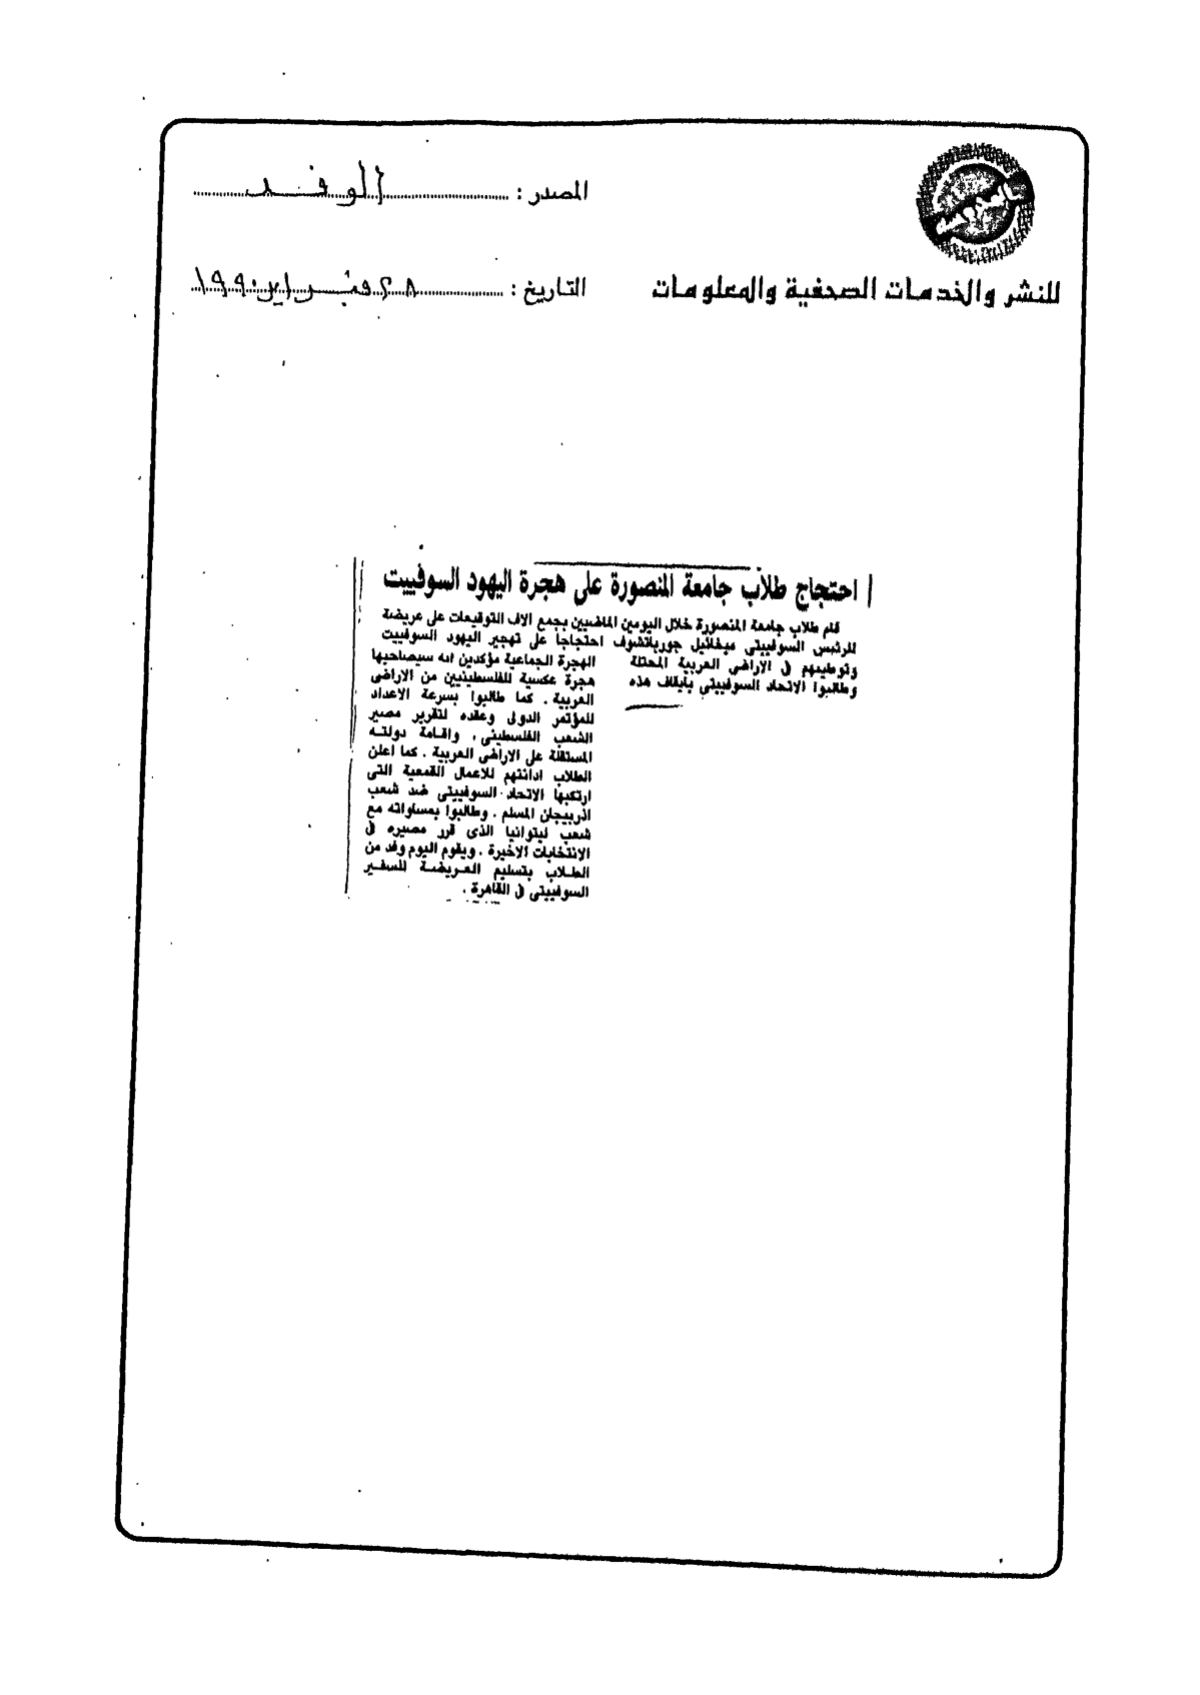 المصدر : الوفد
للنشر والخدمات الصحفية والمعلومات
التاريخ : ٢٨ فبراير ١٩٩٠
احتجاج طلاب جامعة المنصورة على هجرة اليهود السوفييت
قام طلاب جامعة المنصورة خلال اليومين الماضيين بجمع الاف التوقيعات على عريضة
للرئيس السوفييتى ميخائيل جورباتشوف احتجاجا على تهجير اليهود السوفييت
وتوطينهم فى الاراضى العربية المحتلة
وطالبوا الاتحاد السوفييتى بايقاف هذه
الهجرة الجماعية مؤكدين انه سيصاحبها
هجرة عكسية للفلسطينيين من الاراضى
العربية . كما طالبوا بسرعة الاعداد
للمؤتمر الدولى وعقده لتقرير مصير
الشعب الفلسطينى ، واقامة دولته
المستقلة على الاراضى العربية . كما اعلن
الطلاب ادانتهم للاعمال القمعية التى
ارتكبها الاتحاد السوفييتى ضد شعب
اذربيجان المسلم . وطالبوا بمساواته مع
شعب ليتوانيا الذى قرر مصيره فى
الانتخابات الاخيرة . ويقوم اليوم وفد من
الطلاب بتسليم العريضة للسفير
السوفييتى فى القاهرة .